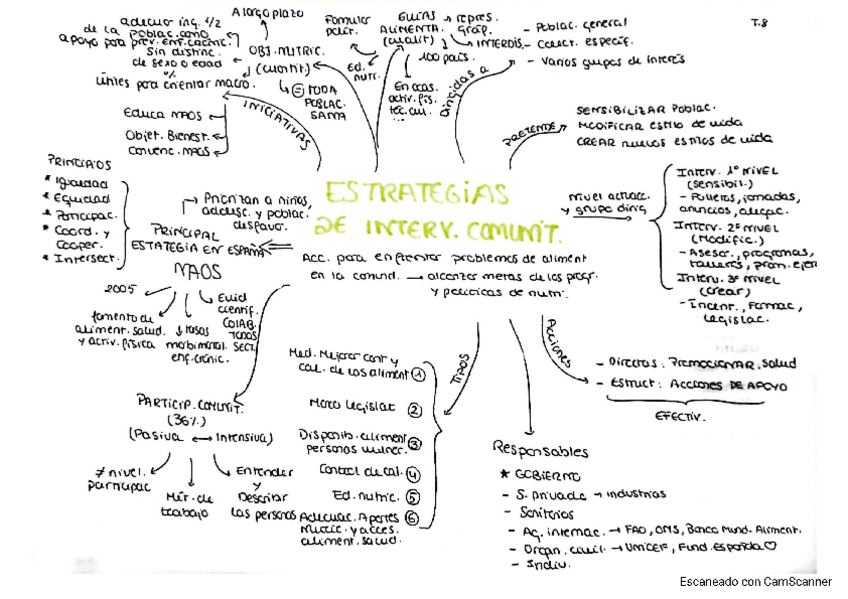 T.8
A largo plazo
adecuar ing. 1/2
de la poblac. como
apoyo para prev. enf. cronic.
Sin distinc.
de sexo o edad
útiles para orientar macro.
OBJ. NUTRIC.
(cuantit)
TODA
POBLAC.
SANA
INICIATIVAS
Educa NAOS
Objet. Bienest.
Convenc. NAOS
Formular
polit.
Ed.
nutri.
GUÍAS
ALIMENTA.
(cualit)
repres.
graf.
INTERDIS.
100 país.
En ocas.
activ. fis.
tec. cul.
...
Dirigidas a
- Poblac. general
- Colect. especif.
- Varios grupos de interés
PRETENDE
SENSIBILIZAR Poblac.
MODIFICAR estilo de vida
CREAR nuevos estilos de vida
ESTRATEGIAS
DE INTERV. COMUNIT.
Acc. para enfrentar problemas de aliment
en la comund. → alcanzar metas de los progr.
y políticas de nutri.
Nivel actuac.
y grupo dirig
Interv. 1º NIVEL
(Sensibil.)
- Folletos, jornadas,
anuncios,
Interv. 2º NIVEL
(Modific.)
- Asesor., programas,
talleres, prom. ejer
Interv. 3º NIVEL
(crear)
- Incent., Formac,
Legislac.
PRINCIPIOS
* Igualdad
* Equidad
* Participac.
* Coord. y
Cooper.
* Intersect.
Priorizan a niños,
adolesc. y poblac.
desfavor.
PRINCIPAL
ESTRATEGIA EN ESPAÑA
NAOS
2005
fomento de
aliment. salud.
y activ. física
↓ tasas
morbimortal.
enf. crónic.
Evid
cientif.
COLAB.
TODOS
SECT.
PARTICIP. COMUNIT.
(36%)
(Pasiva ↔ Intensiva)
≠ nivel.
participac
Mét. de
trabajo
Entender
y
Describir
las personas
TIPOS
Med. Mejorar cont y
cal. de los aliment ①
Marco legislat ②
Disponib. aliment ③
personas vulner.
Control de cal. ④
Ed. nutric. ⑤
Adecuac. Aportes ⑥
nutric. y acces.
aliment. salud.
ACCIONES
- Directas: Promocionar, Salud
- Estruct: Acciones DE APOYO
EFECTIV.
Responsables
* GOBIERNO
- S. privado → industrias
- Sanitarios
- Ag. internac. → FAO, OMS, Banco Mund. Aliment.
- Organ. civil → UNICEF, Fund. Española ♡
- Indiv.
Escaneado con CamScanner